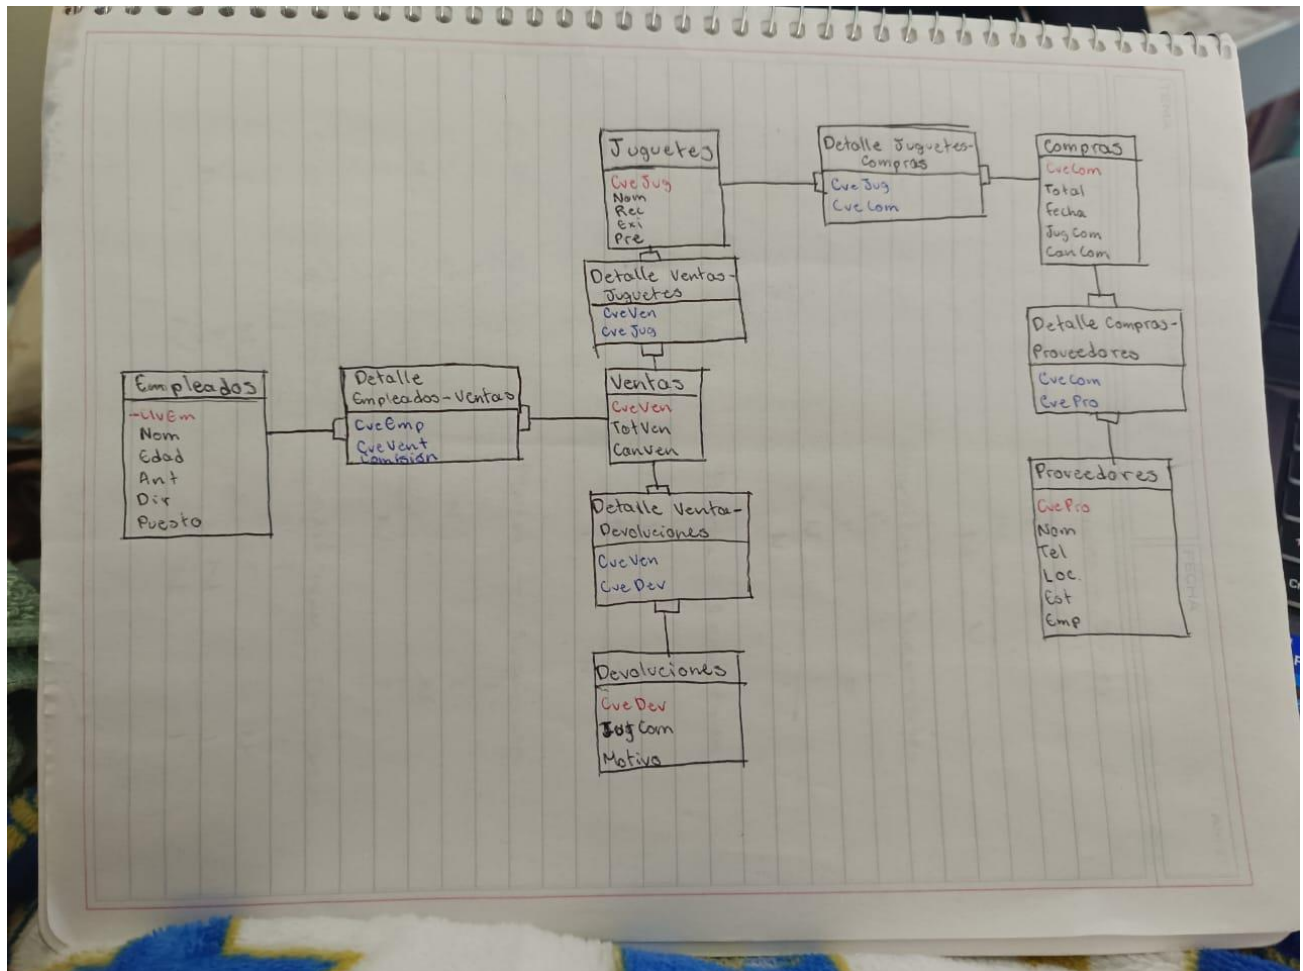 Juguetes
CveJug
Nom
Rec
Exi
Pre
Detalle Juguetes-
Compras
CveJug
CveCom
Compras
CveCom
Total
fecha
JugCom
CanCom
Detalle Ventas-
Juguetes
CveVen
CveJug
Detalle Compras-
Proveedores
CveCom
CvePro
Empleados
Nom
Edad
Ant
Dir
Puesto
Detalle
Empleados-Ventas
CveEmp
CveVent
Comisión
Ventas
CveVen
TotVen
CanVen
Proveedores
CvePro
Nom
Tel
Loc.
Est
Emp
Detalle Ventas-
Devoluciones
CveVen
CveDev
Devoluciones
CveDev
JugCom
Motivo
FECHA